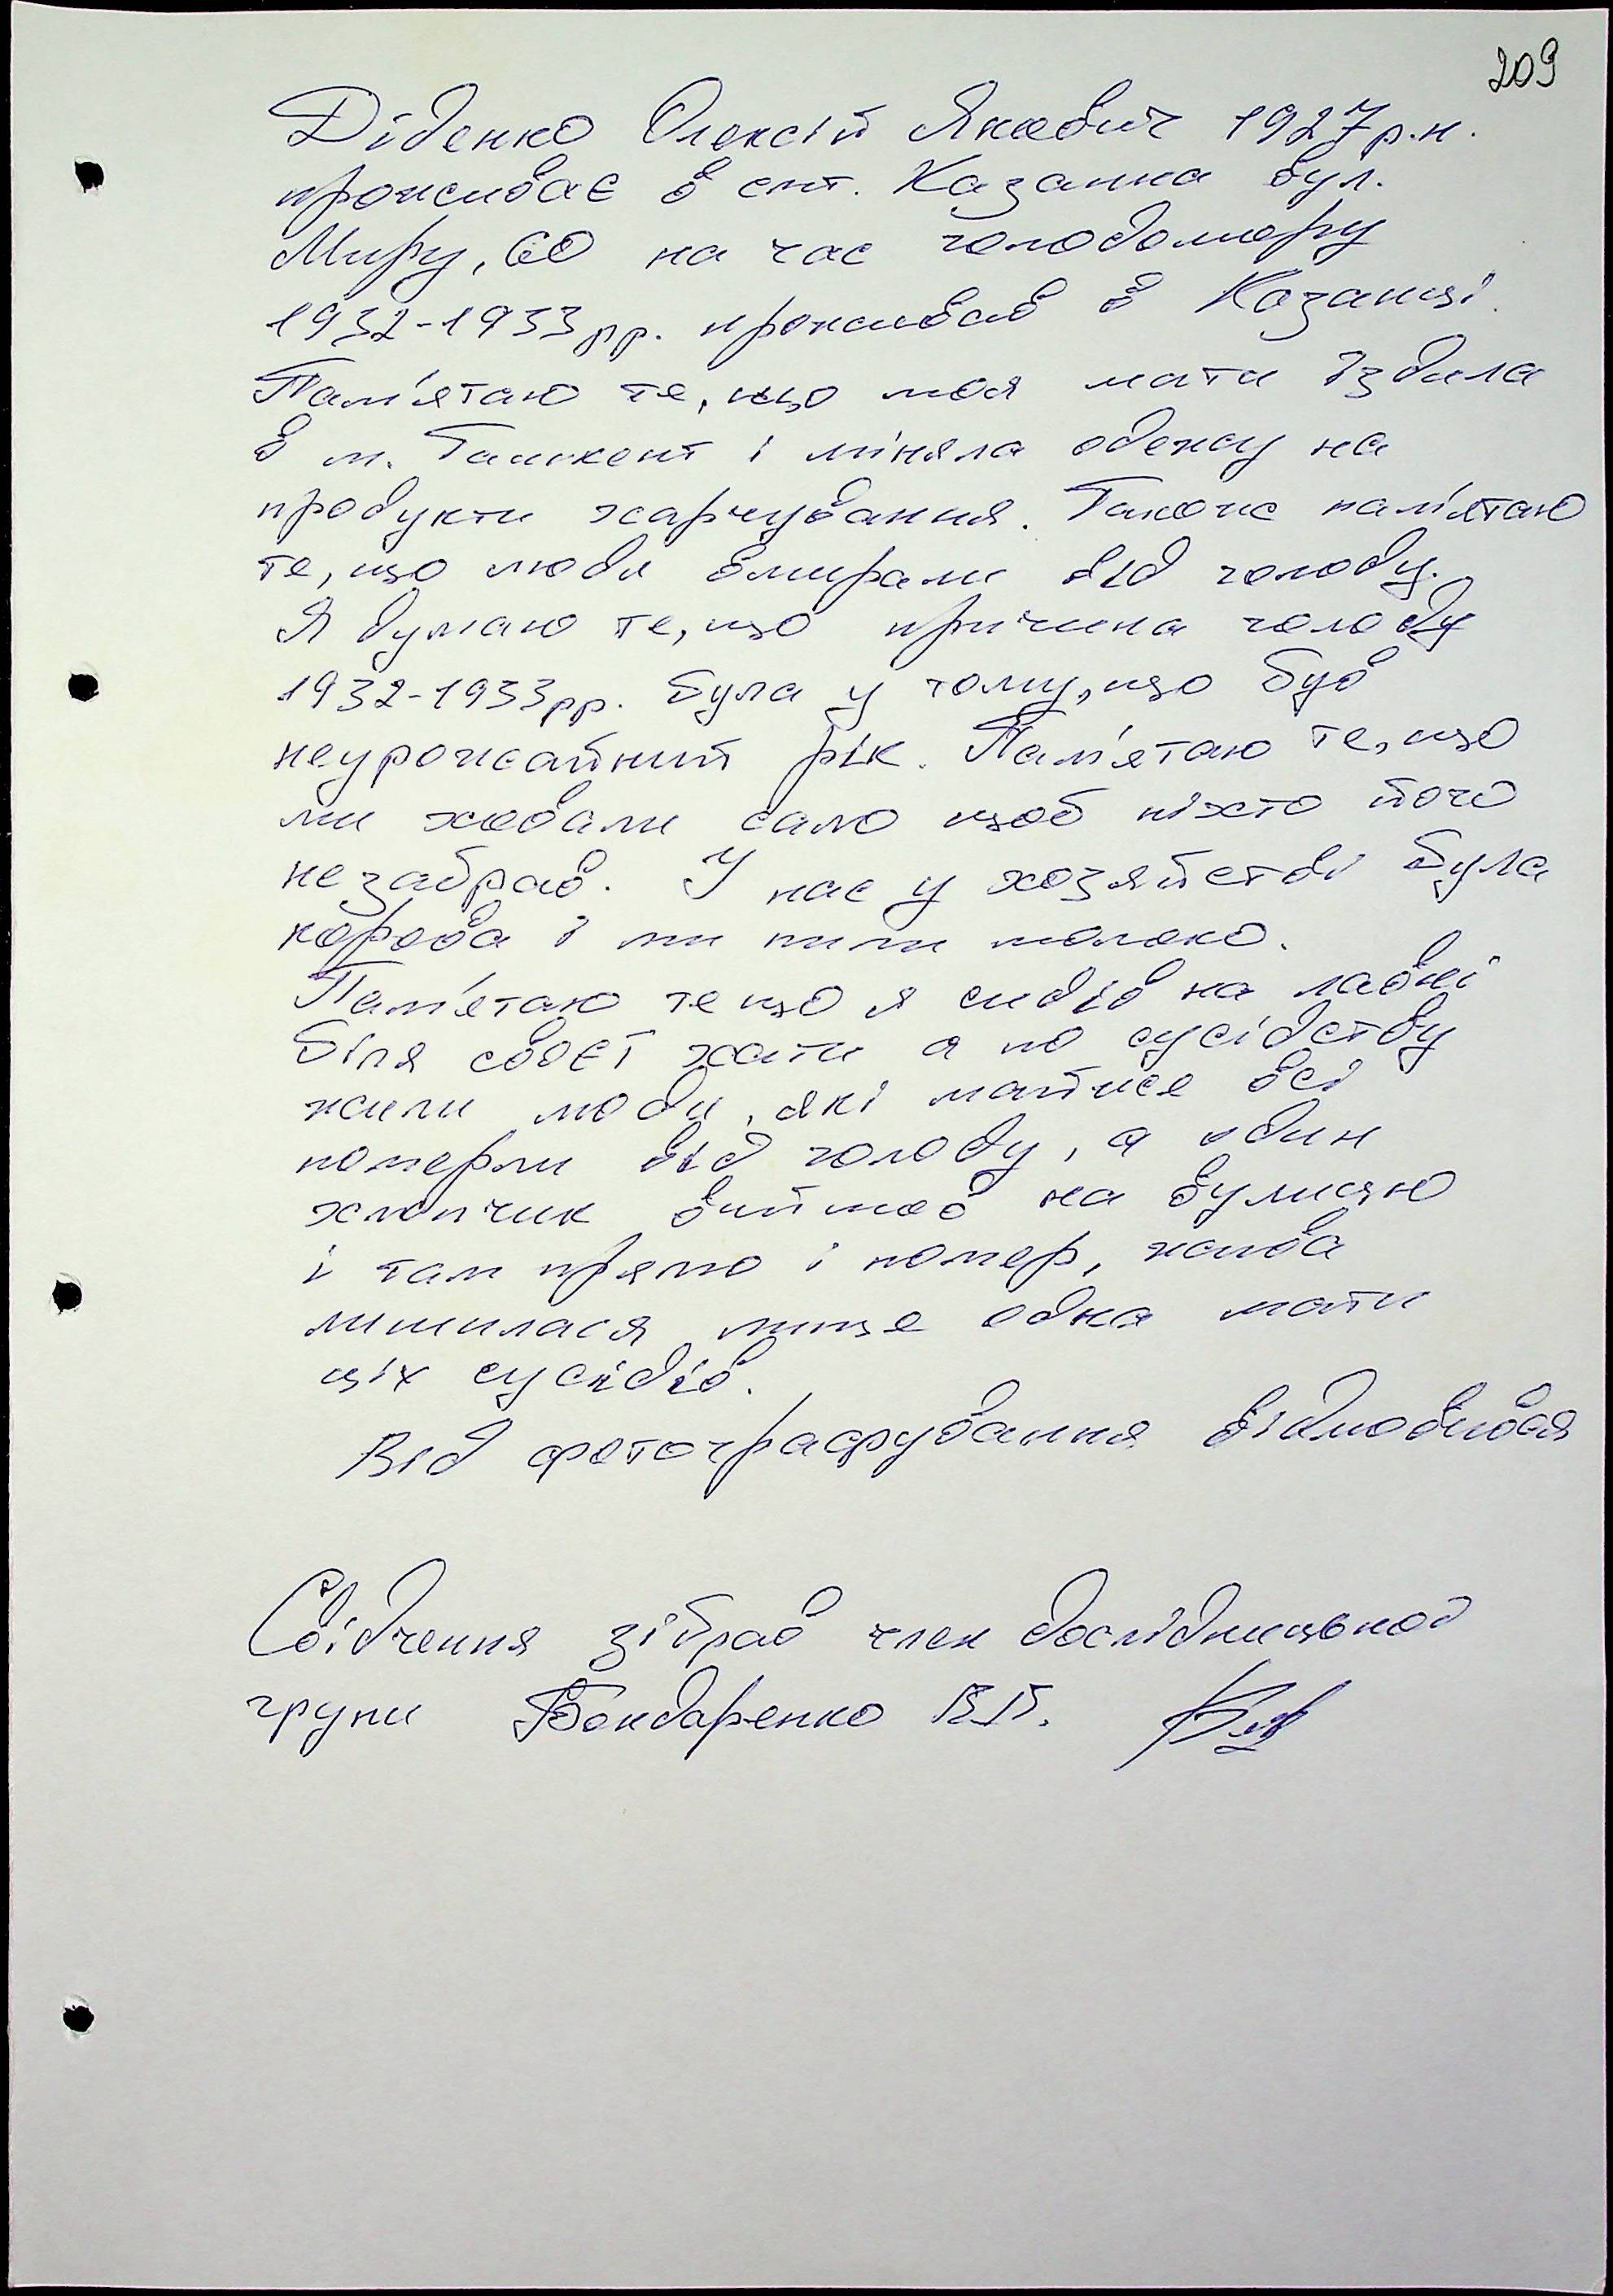 209
Діденко Олексій Якович 1927р.н.
проживає в смт. Казанка вул.
Миру, 60 на час голодомору
1932-1933рр. проживав в Казанці.
Пам'ятаю те, що моя мати їздила
в м. Ташкент і міняла одежу на
продукти харчування. Також пам'ятаю
те, що люди вмирали від голоду.
Я думаю те, що причина голоду
1932-1933рр. була у тому, що був
неурожайний рік. Пам'ятаю те, що
ми ховали сало щоб ніхто його
незабрав. У нас у хозяйстві була
корова і ми пили молоко.
Пам'ятаю те що я сидів на лавці
біля своєї хати а по сусідству
жили люди, які майже всі
померли від голоду, а один
хлопчик вийшов на вулицю
і там прямо і помер, жива
лишилася лише одна мати
ціх сусідів.
Від фотографування відмовився
Свідчення зібрав член дослідницької
групи Бондаренко В.В.